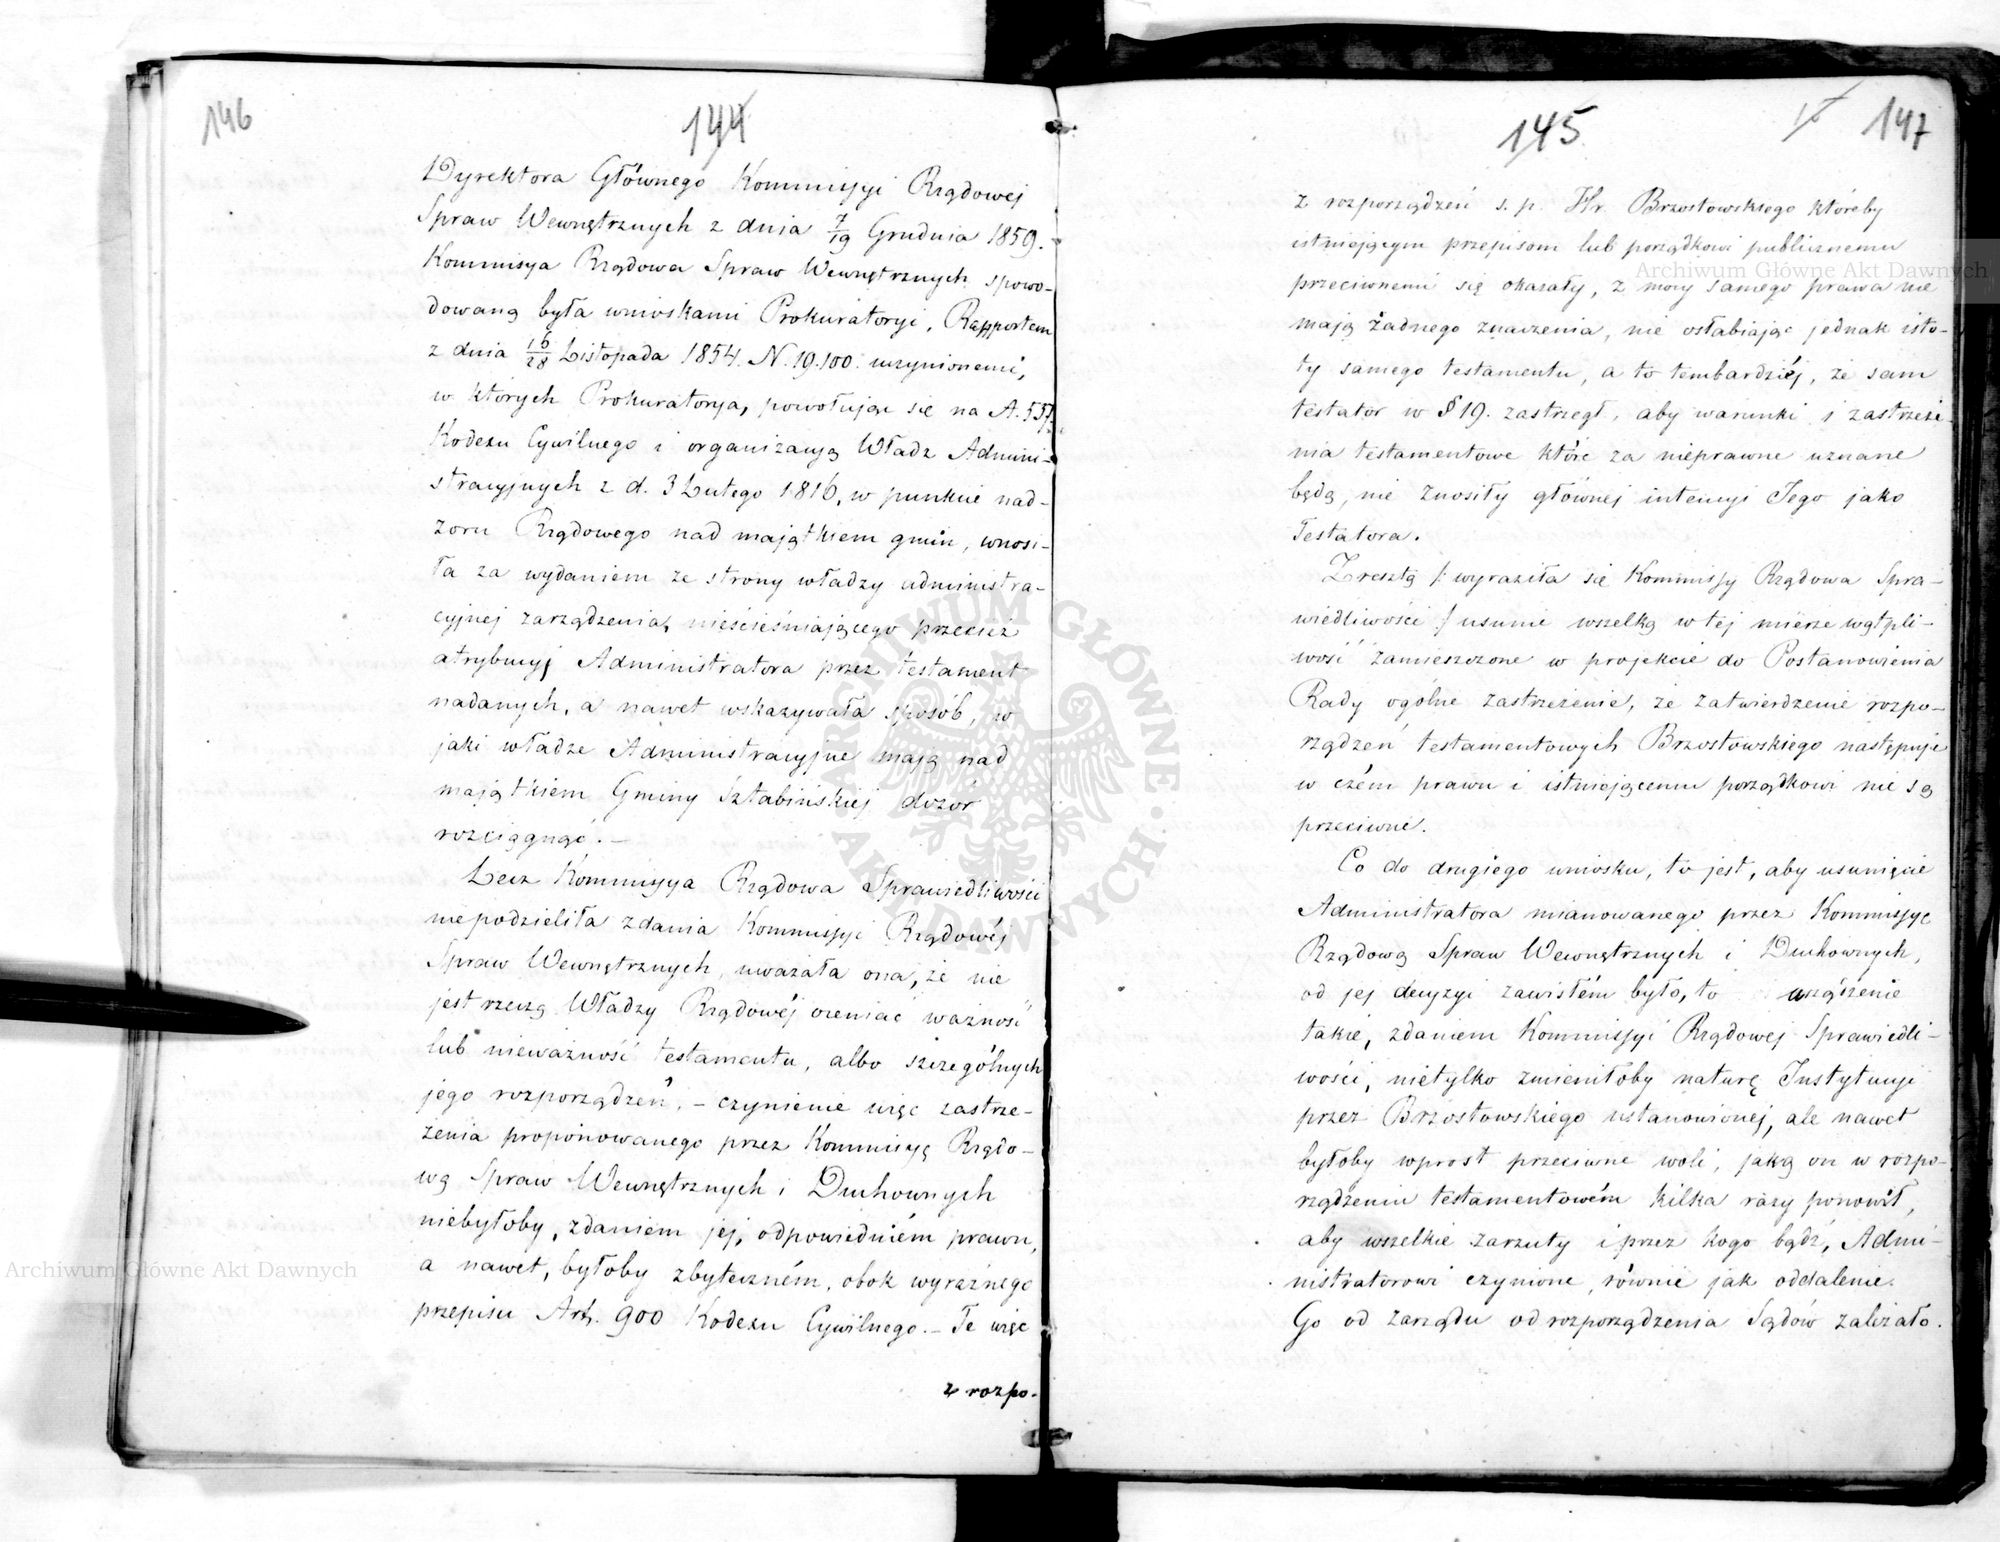 146
144
Dyrektora Głównego Kommissyi Rządowej
Spraw Wewnętrznych z dnia 7/19 Grudnia 1859.
Kommisya Rządowa Spraw Wewnętrznych spowo-
dowaną była wnioskami Prokuratoryi, Rapportem
z dnia 16/28 Listopada 1854. N. 19.100. uczynionemi,
w których Prokuratorya, powołując się na A. 537.
Kodexu Cywilnego i organizacyą Władz Admini-
stracyjnych z d. 3 Lutego 1816, w punkcie nad-
zoru Rządowego nad majątkiem gmin, wnosi-
ła za wydaniem ze strony władzy administra-
cyjnej zarządzenia, nieścieśniającego przecież
atrybucyj Administratora przez testament
nadanych, a nawet wskazywała sposób, w
jaki władze Administracyjne mają nad
majątkiem Gminy Sztabińskiej dozór
rozciągnąć. —
Lecz Kommissya Rządowa Sprawiedliwości
niepodzieliła zdania Kommissyi Rządowéj
Spraw Wewnętrznych, uważała ona, że nie
jest rzeczą Władzy Rządowéj oceniać ważność
lub nieważność testamentu, albo szczególnych
jego rozporządzeń, – czynienie więc zastrze-
żenia proponowanego przez Kommisyę Rządo-
wą Spraw Wewnętrznych i Duchownych
niebyłoby, zdaniem jej, odpowiedniém prawu,
a nawet, byłoby zbyteczném, obok wyraźnego
przepisu Art. 900 Kodexu Cywilnego. – Te więc
z rozpo-
145
147
z rozporządzeń s. p. Hr. Brzostowskiego któreby
istniejącym przepisom lub porządkowi publicznemu
przeciwnemi się okazały, z mocy samego prawa nie
mają żadnego znaczenia, nie osłabiając jednak isto-
ty samego testamentu, a to tembardziéj, że sam
testator w § 19. zastrzegł, aby warunki i zastrzeże-
nia testamentowe które za nieprawne uznane
będą, nie znosiły głównej intencyi Jego jako
Testatora.
Zresztą /: wyraziła się Kommissy Rządowa Spra-
wiedliwości :/ usunie wszelką w téj mierze wątpli-
wość zamieszczone w projekcie do Postanowienia
Rady ogólne zastrzeżenie, że zatwierdzenie rozpo-
rządzeń testamentowych Brzostowskiego następuje
w czém prawu i istniejącemu porządkowi nie są
przeciwne.
Co do drugiego wniosku, to jest, aby usunięcie
Administratora mianowanego przez Kommissyę
Rządową Spraw Wewnętrznych i Duchownych,
od jej decyzyi zawisłém było, to
takie, zdaniem Kommissyi Rządowej Sprawiedli-
wości, nietylko zmieniłoby naturę Instytucyi
przez Brzostowskiego ustanowionej, ale nawet
byłoby wprost przeciwne woli, jaką on w rozpo-
rządzeniu testamentowém kilka razy ponowił,
aby wszelkie zarzuty i przez kogo bądź, Admi-
nistratorowi czynione, równie jak oddalenie
Go od zarządu od rozporządzenia Sądów zależało.
Archiwum Główne Akt Dawnych
Archiwum Główne Akt Dawnych
ARCHIWUM GŁÓWNE AKT DAWNYCH